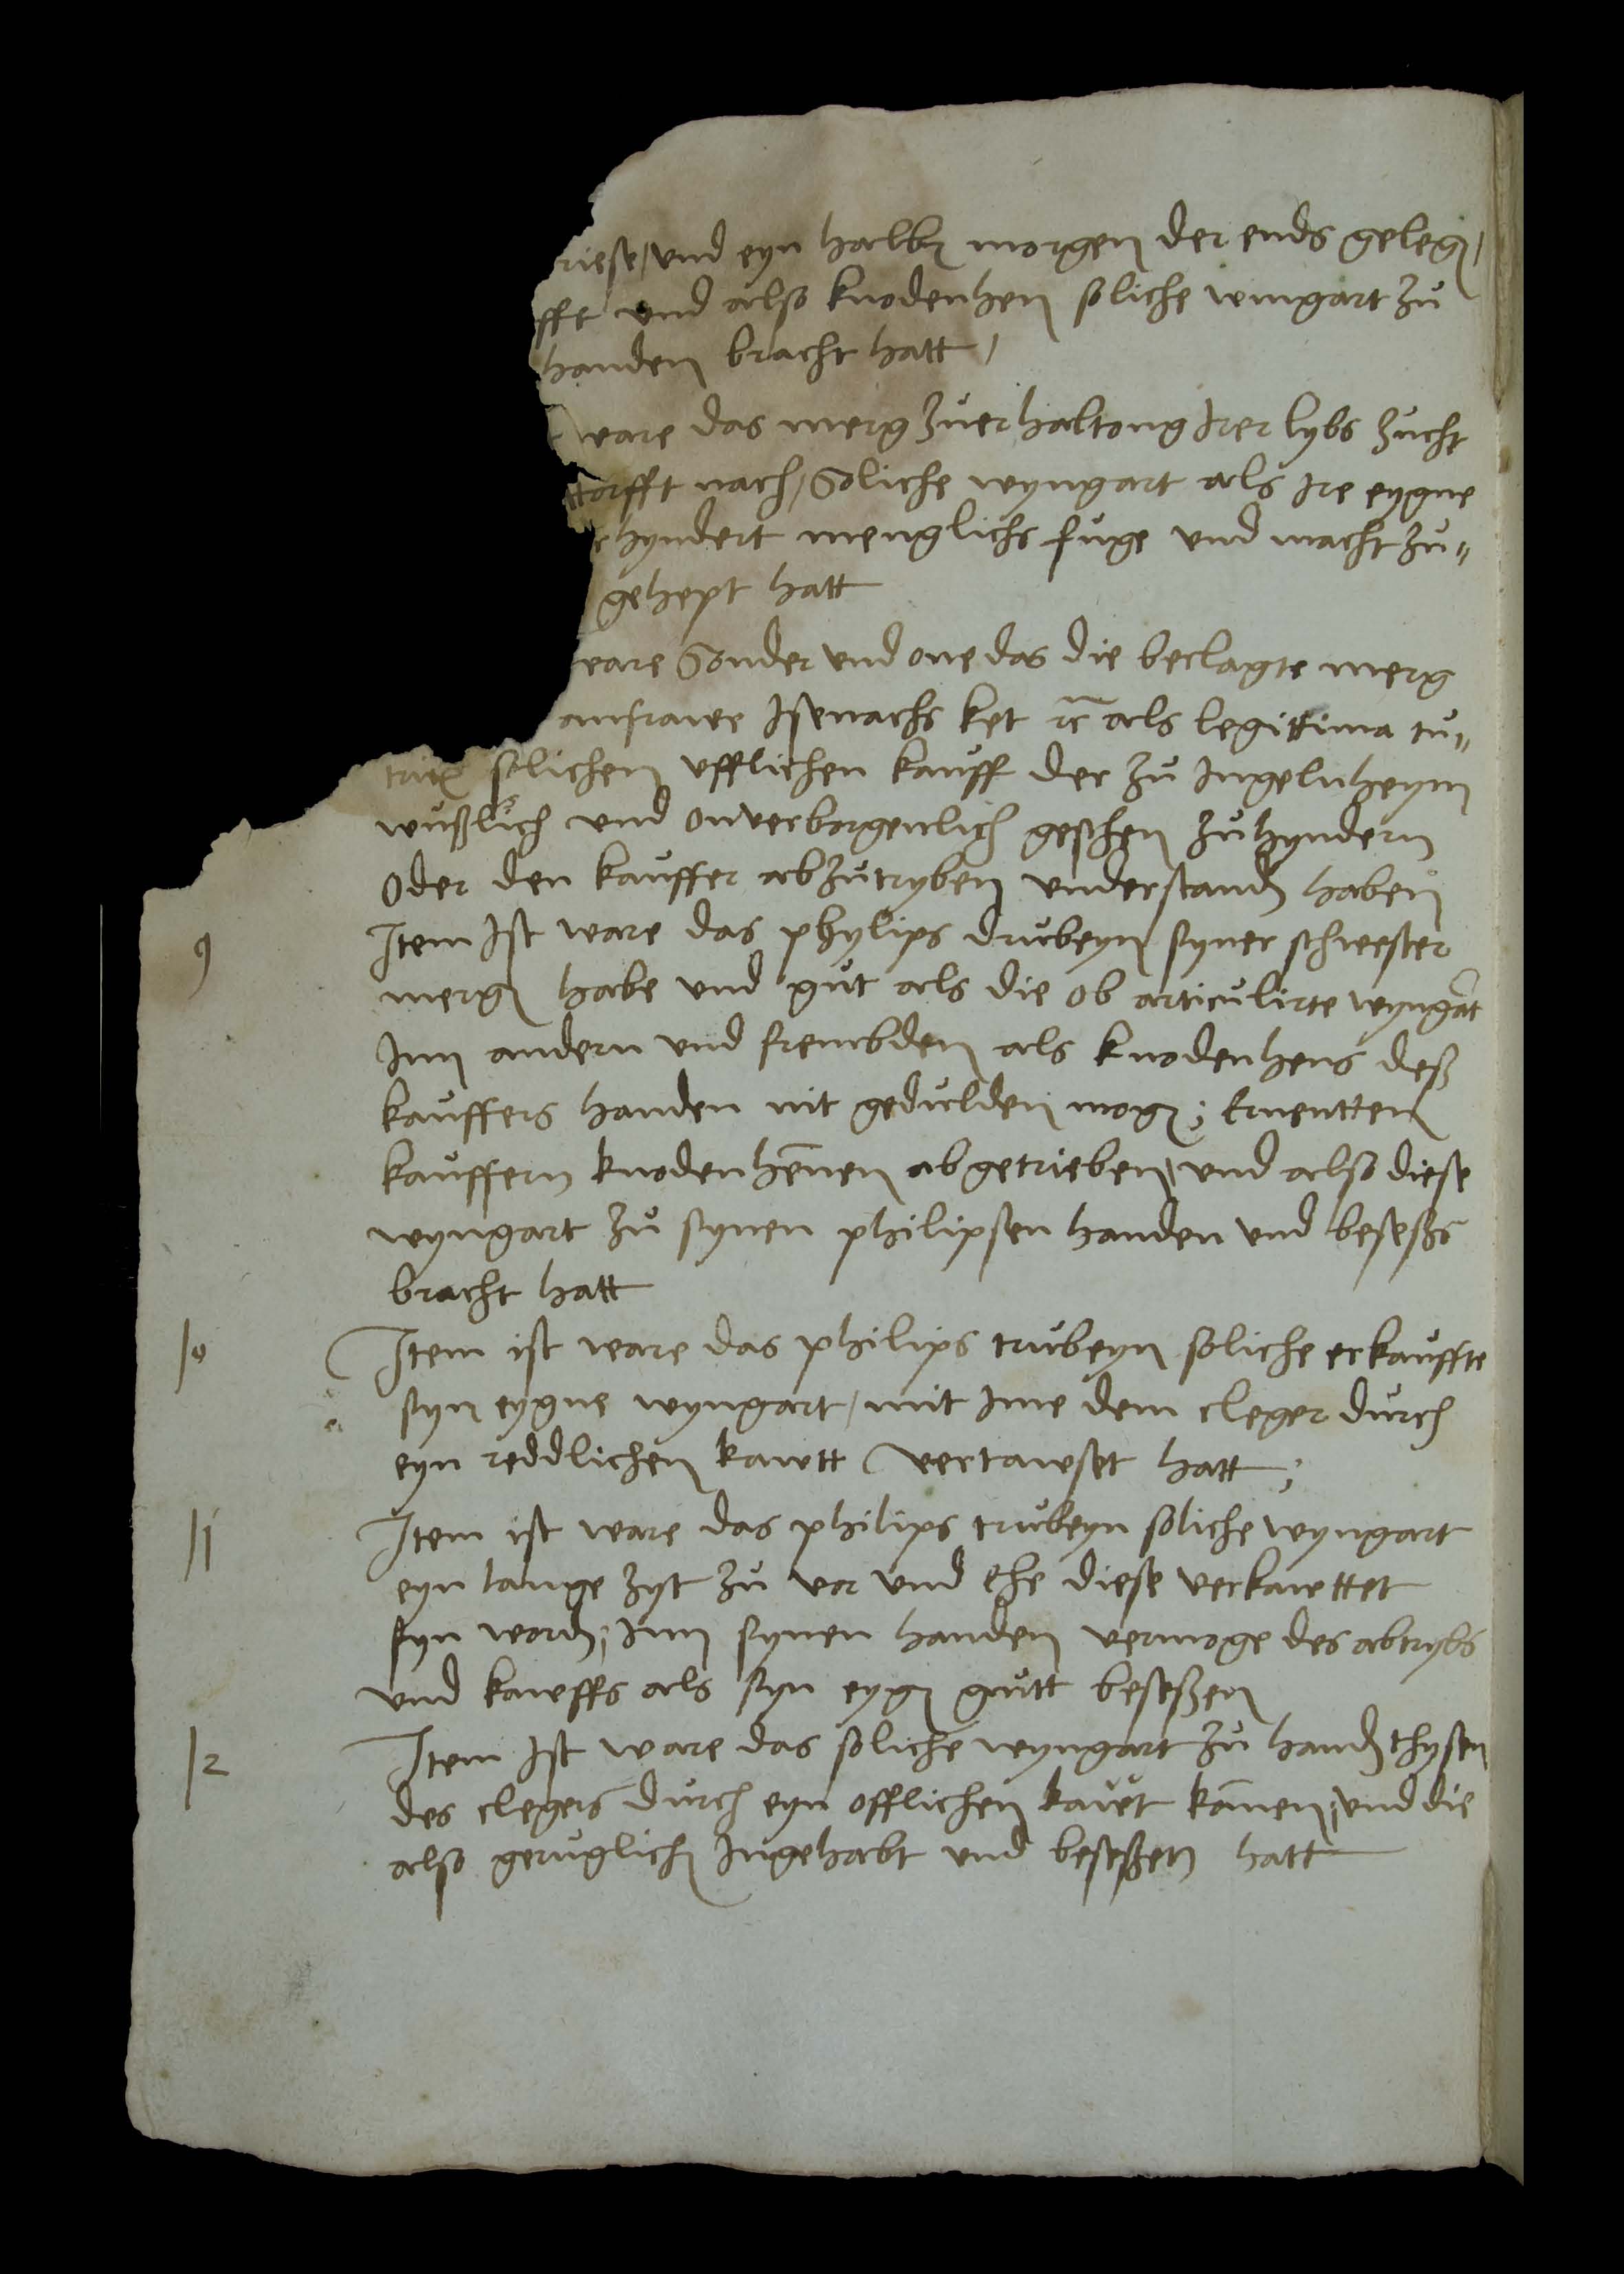 riese / und eyn halbⸯ morgen der ends gelegⸯ /
fft und also knodenhen soliche wingart zu
handen bracht hatt /
ware das merg zuerhaltong Irer lybs zucht
ttorfft nach / Soliche wyngart als Ire eygne
hyndert menglichs fuge und macht zu"
gehept hatt
ware Sonder und one das die beclagte merg
anfrawe Isenachs ket rc als legittima tu"
trix solichen ufflichen kauff der zu Ingelnheym
wußlich und onverborgenlich geschen zuhyndern
Oder den kauffer abzutryben understandⸯ haben
9 Item Ist ware das phylips drubeyn syner schwester
mergⸯ habe und gut als die ob articulirte wyngart
Inn andern und frembden als knodenhens deß
kauffers handen nit gedulden mogⸯ; Ernentten
kauffern knodenhenen abgetrieben, und also diese
wyngart zu synen philipsen handen und beseßs
bracht hatt
10 Item ist ware das philips trubeyn soliche erkauffte
syn eygne wyngart / mit Ime dem cleger durch
eyn reddlichen kawtt vertawset hatt ;
11 Item ist ware das philips trubeyn soliche wyngart
eyn lange zyt zu vor und Ehe diese verkawttet
syn wordⸯ; Inn synen handen vermoge des abtrybs
und kawffs als syn eygⸯ gutt beseßen
12 Item Ist ware das soliche wyngart zu handⸯ thysen
des clegers durch eyn offlichen kaut komen; und die
also geruglich Ingehabt und beseßen hatt